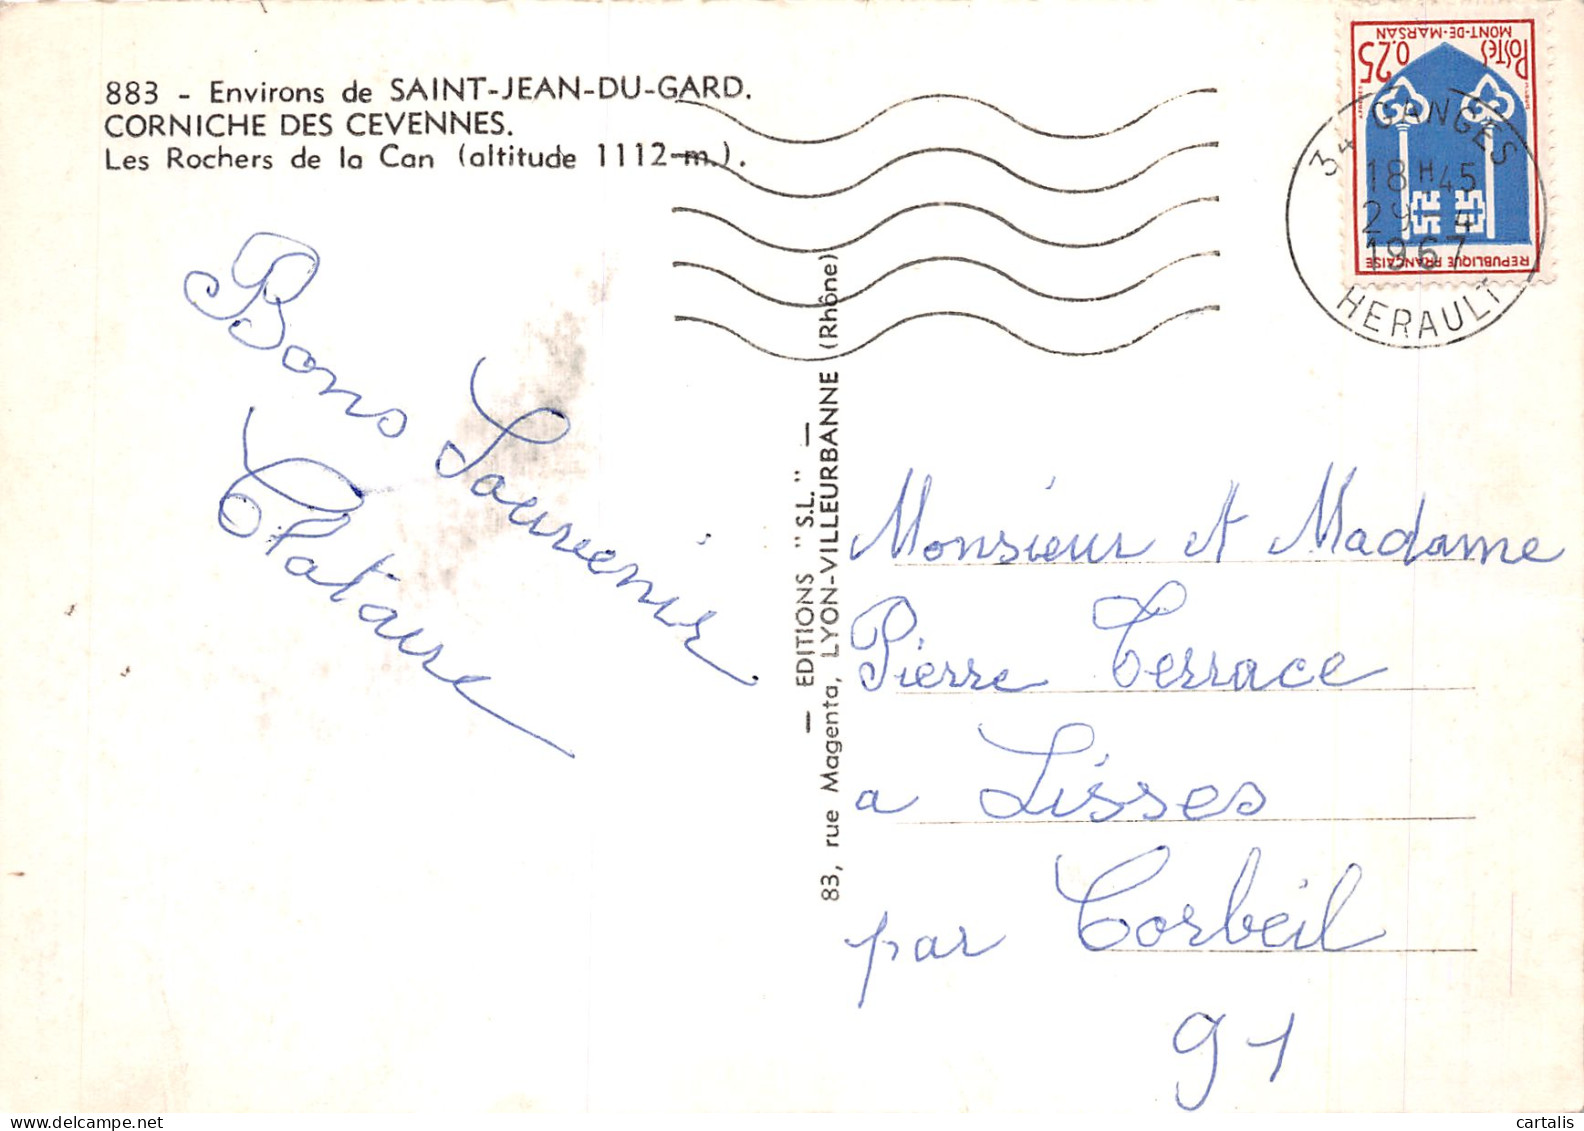 883 - Environs de SAINT-JEAN-DU-GARD.
CORNICHE DES CEVENNES.
Les Rochers de la Can (altitude 1112 m.).
POSTES
0.25
MONT-DE-MARSAN
REPUBLIQUE FRANÇAISE
34 GANGES
18H45
29-4
1967
HERAULT
Bons Souvenir
— EDITIONS "S.L." —
83, rue Magenta, LYON-VILLEURBANNE (Rhône)
Monsieur et Madame
Pierre Terrace
a Lisses
par Corbeil
91
delcampe.net
The World's Greatest Marketplace for Collectors
cartalis